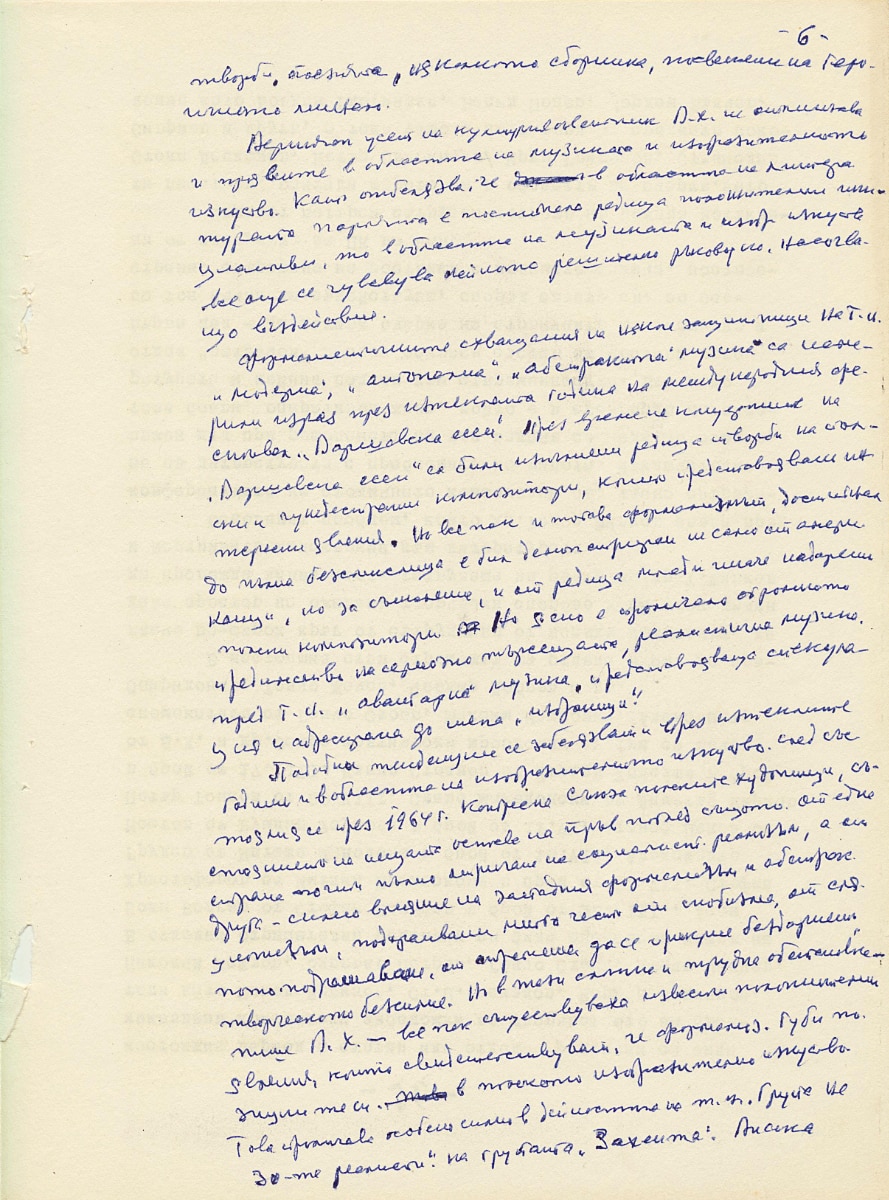 - 6 -
творби, поезията, из няколко сборника, посветени на Геро-
ичното минало.
Верният усет на културния съветник В.Х. не отминава
и проявите в областта на музиката и изобразителното
изкуство. Като отбелязва, че в областта на литера
турата партията е постигнала редица положителни ини-
циативи, то в областта на музиката и изобр. изкуство
все още се чувства нейното решително ръководно, насочва-
що въздействие.
Формалистичните схващания на някои защитници на т.н.
"модерна", "атонална", "абстрактна" музика са наме-
рили израз през изтеклата година на международния фе-
стивал "Варшавска есен". През време на концертите на
"Варшавска есен" са били изпълнени редица творби на пол-
ски и чуждестранни композитори, които представляват ин-
тересни явления. Но все пак и тогава формализмът, достигнал
до пълна безсмислица е бил демонстриран не само от амери
канци, но за съжаление, и от редица млади и иначе надарени
полски композитори. Но ясно е проличало огромното
предимство на сериозно търсещата, реалистична музика.
пред т.н. "авангардна" музика, представляваща спекула-
ция и адресирана до шепа "избраници".
Подобни тенденции се забелязвали през изтеклите
години и в областта на изобразителното изкуство. След със
тоялия се през 1964 г. Конгрес на Съюза на полските художници, съ-
стоянието на нещата остава на пръв поглед същото. От една
страна почти пълно отричане на социалист. реализъм, а от
друга - силно влияние на западния формализъм и абстрак-
ционизъм, подхранвани много често от снобизма, от сля-
пото подражаване, от стремежа да се прикрие бездарието,
творческото безсилие. Но в тази сложна и трудна обстановка -
пише В.Х. - все пак съществуваха известни положителни
явления, които свидетелстват, че формализ. губи по-
зиции те си. в полското изобразително изкуство.
Това проличава особено силно в дейността на т.н. Група на
реалисти" на групата "Захента". Висока